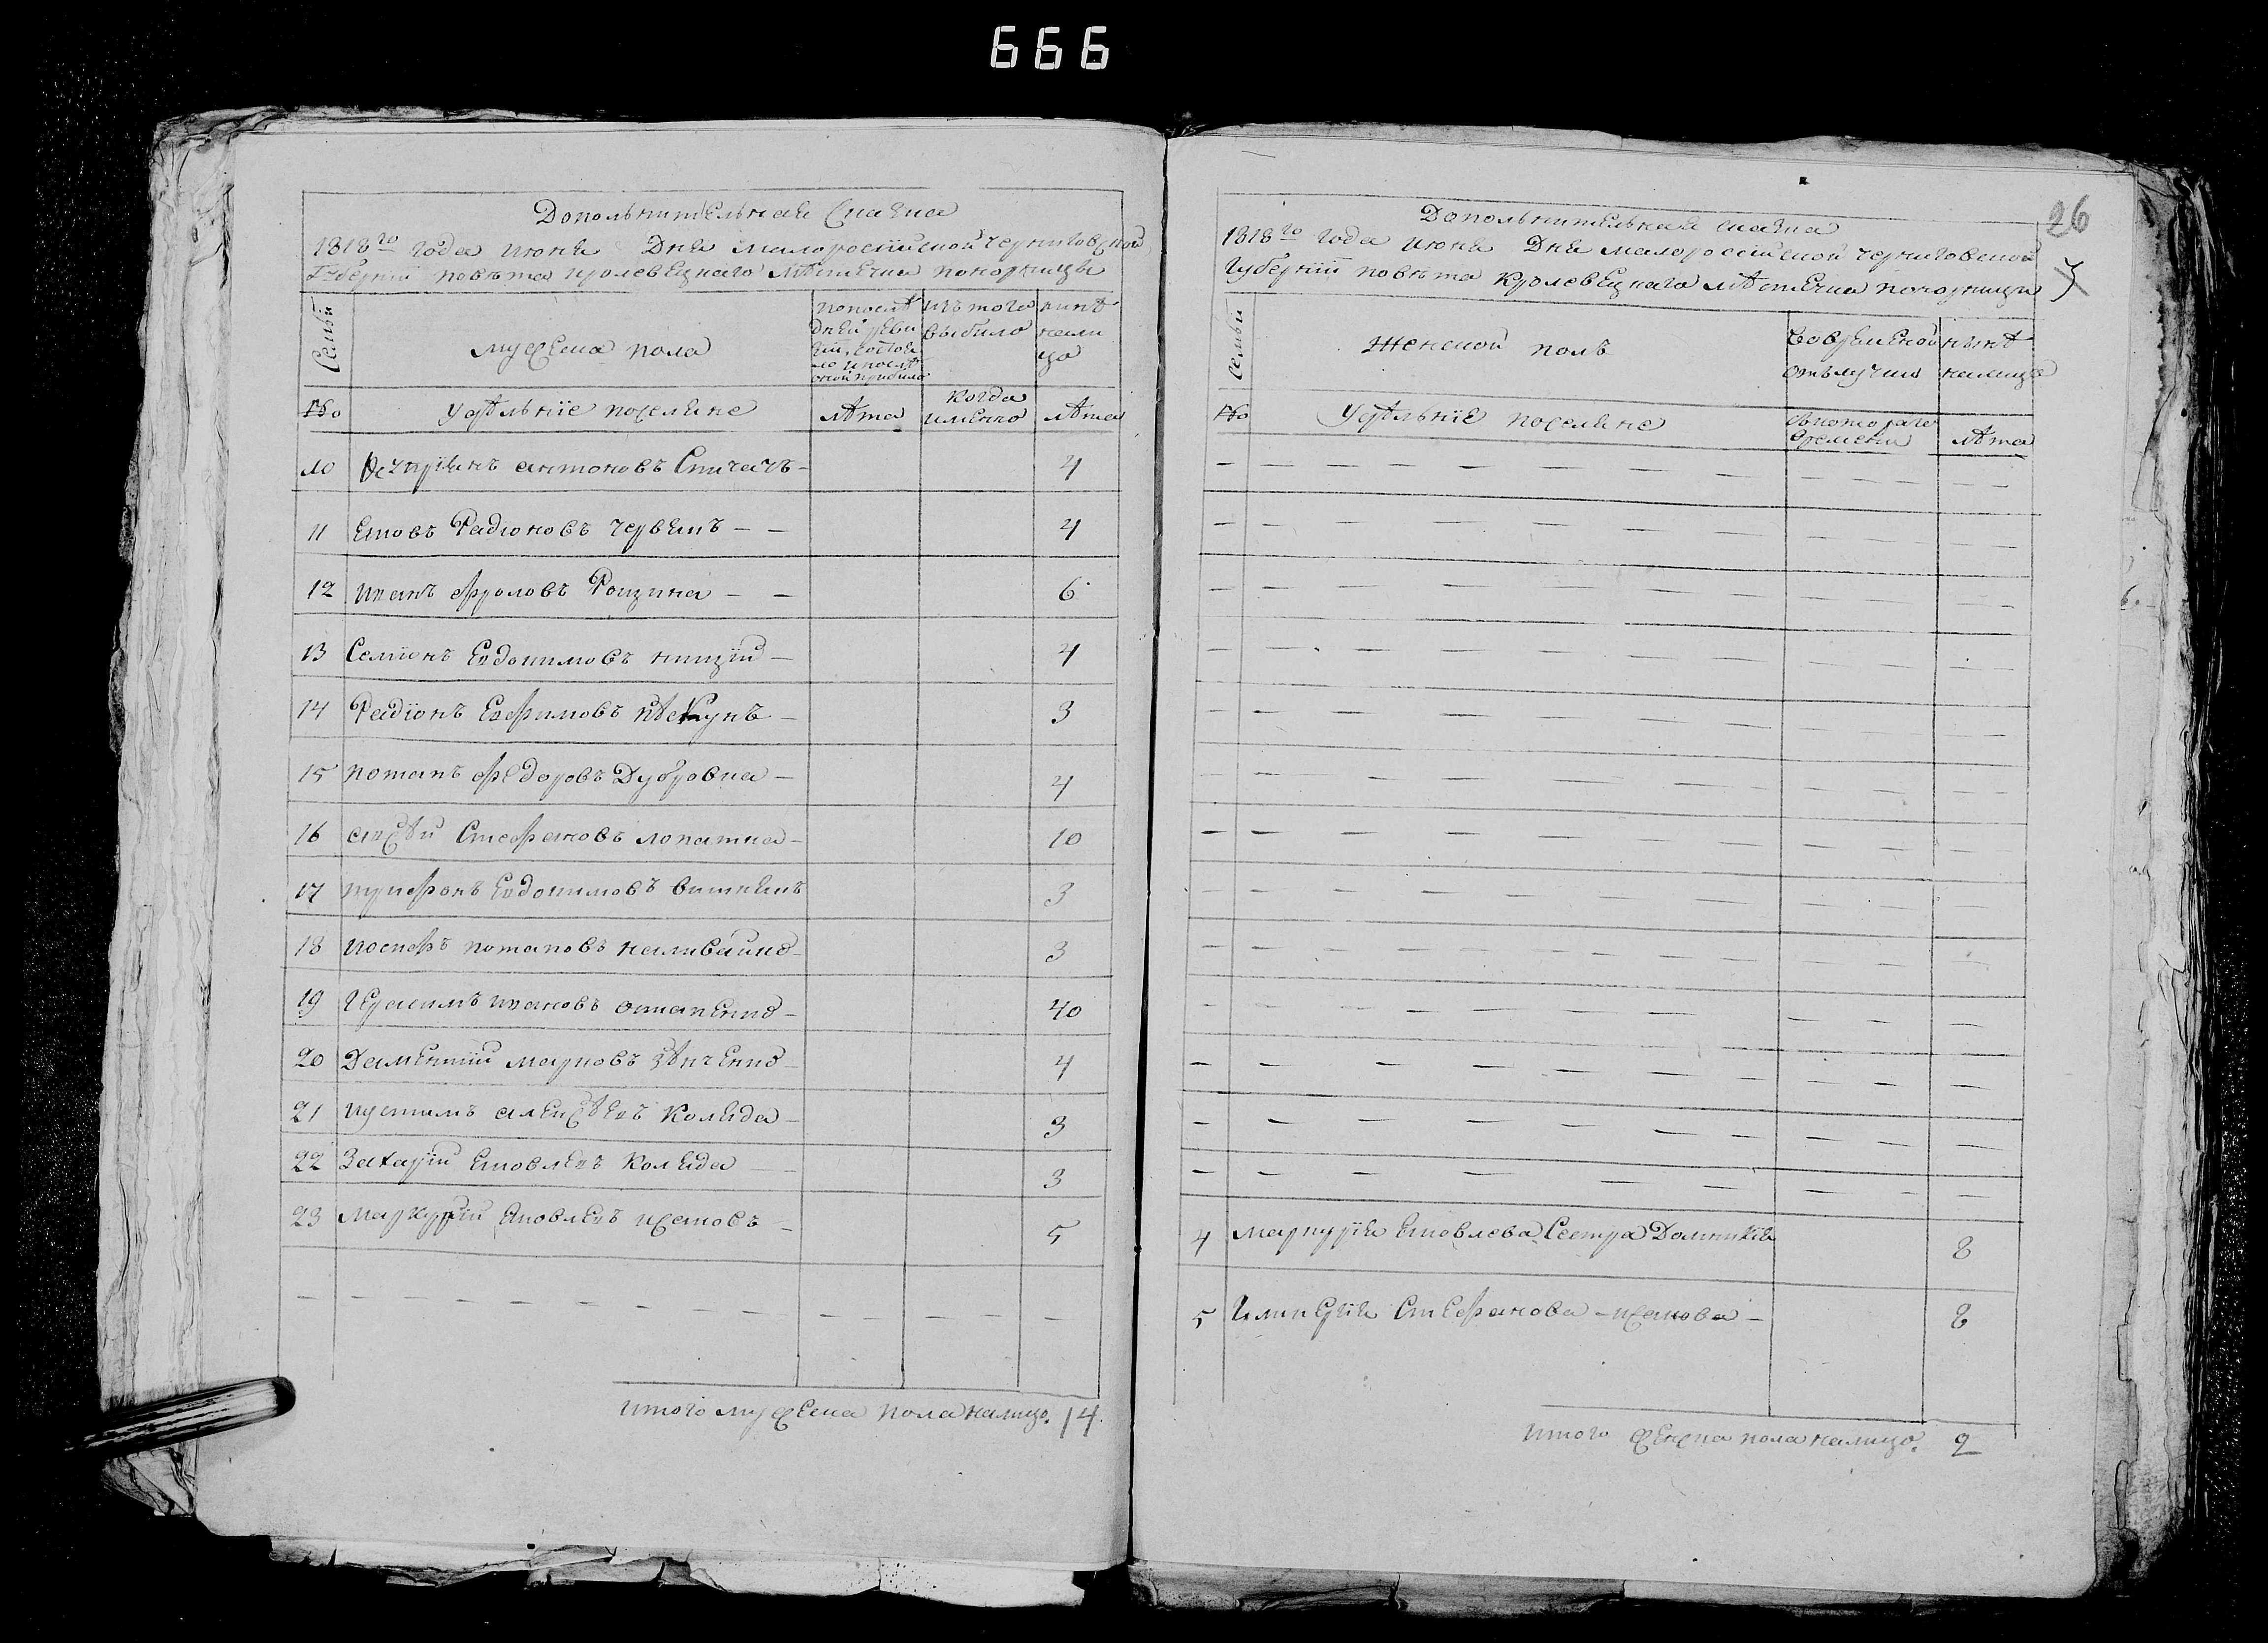 666
Дополнительная Сказка
1818го года июня Дня малоросiйской черниговской
Губернiи повѣта кролевецкаго мѣстечка понорницы
Семьи
мужеска пола
по послѣ
дней реви
зiи состоя
ло и послѣ
оной прибыло
изъ того
выбыло
нинѣ
нали
цо
№
Удѣльнiе поселяне
лѣта
когда
именно
лѣта
10 антоновъ Спичакъ 4
11 Яковъ Радионовъ червякъ 4
12 иванъ фроловъ Рощина 6
13 Семионъ Евдокимовъ нищiй 4
14 Радiонъ Ефимовъ 3
15 потапъ федоровъ Дубровка 4
16 Стефановъ лопатка 10
17 трифонъ Евдокимовъ вишнякъ 3
18 иосифъ потаповъ наливайко 3
19 Герасимъ ивановъ остапенко 40
20 Даментiй марковъ зѣнченко 4
21 устимъ алексѣевъ Коляда 3
22 Захарiй Яковлевъ Коляда 3
23 Маркурiй Яковлевъ исаковъ 5
итого мужеска пола налицо. 14.
26
Дополнительная сказка
1818го года июня Дня малороссiйской черниговской
Губернiи повѣта Кролевецкаго мѣстечка понорници
Семьи
Женской полъ
Вовременой
отълучки
нынѣ
налицо
№
Удѣльнiе поселяне
съкоторого
времени
лѣта
4 маркурiя Яковлева Сестра Домникiя 8
5 Гликерiя Стефанова исакова 8
итого женска пола налицо. 2